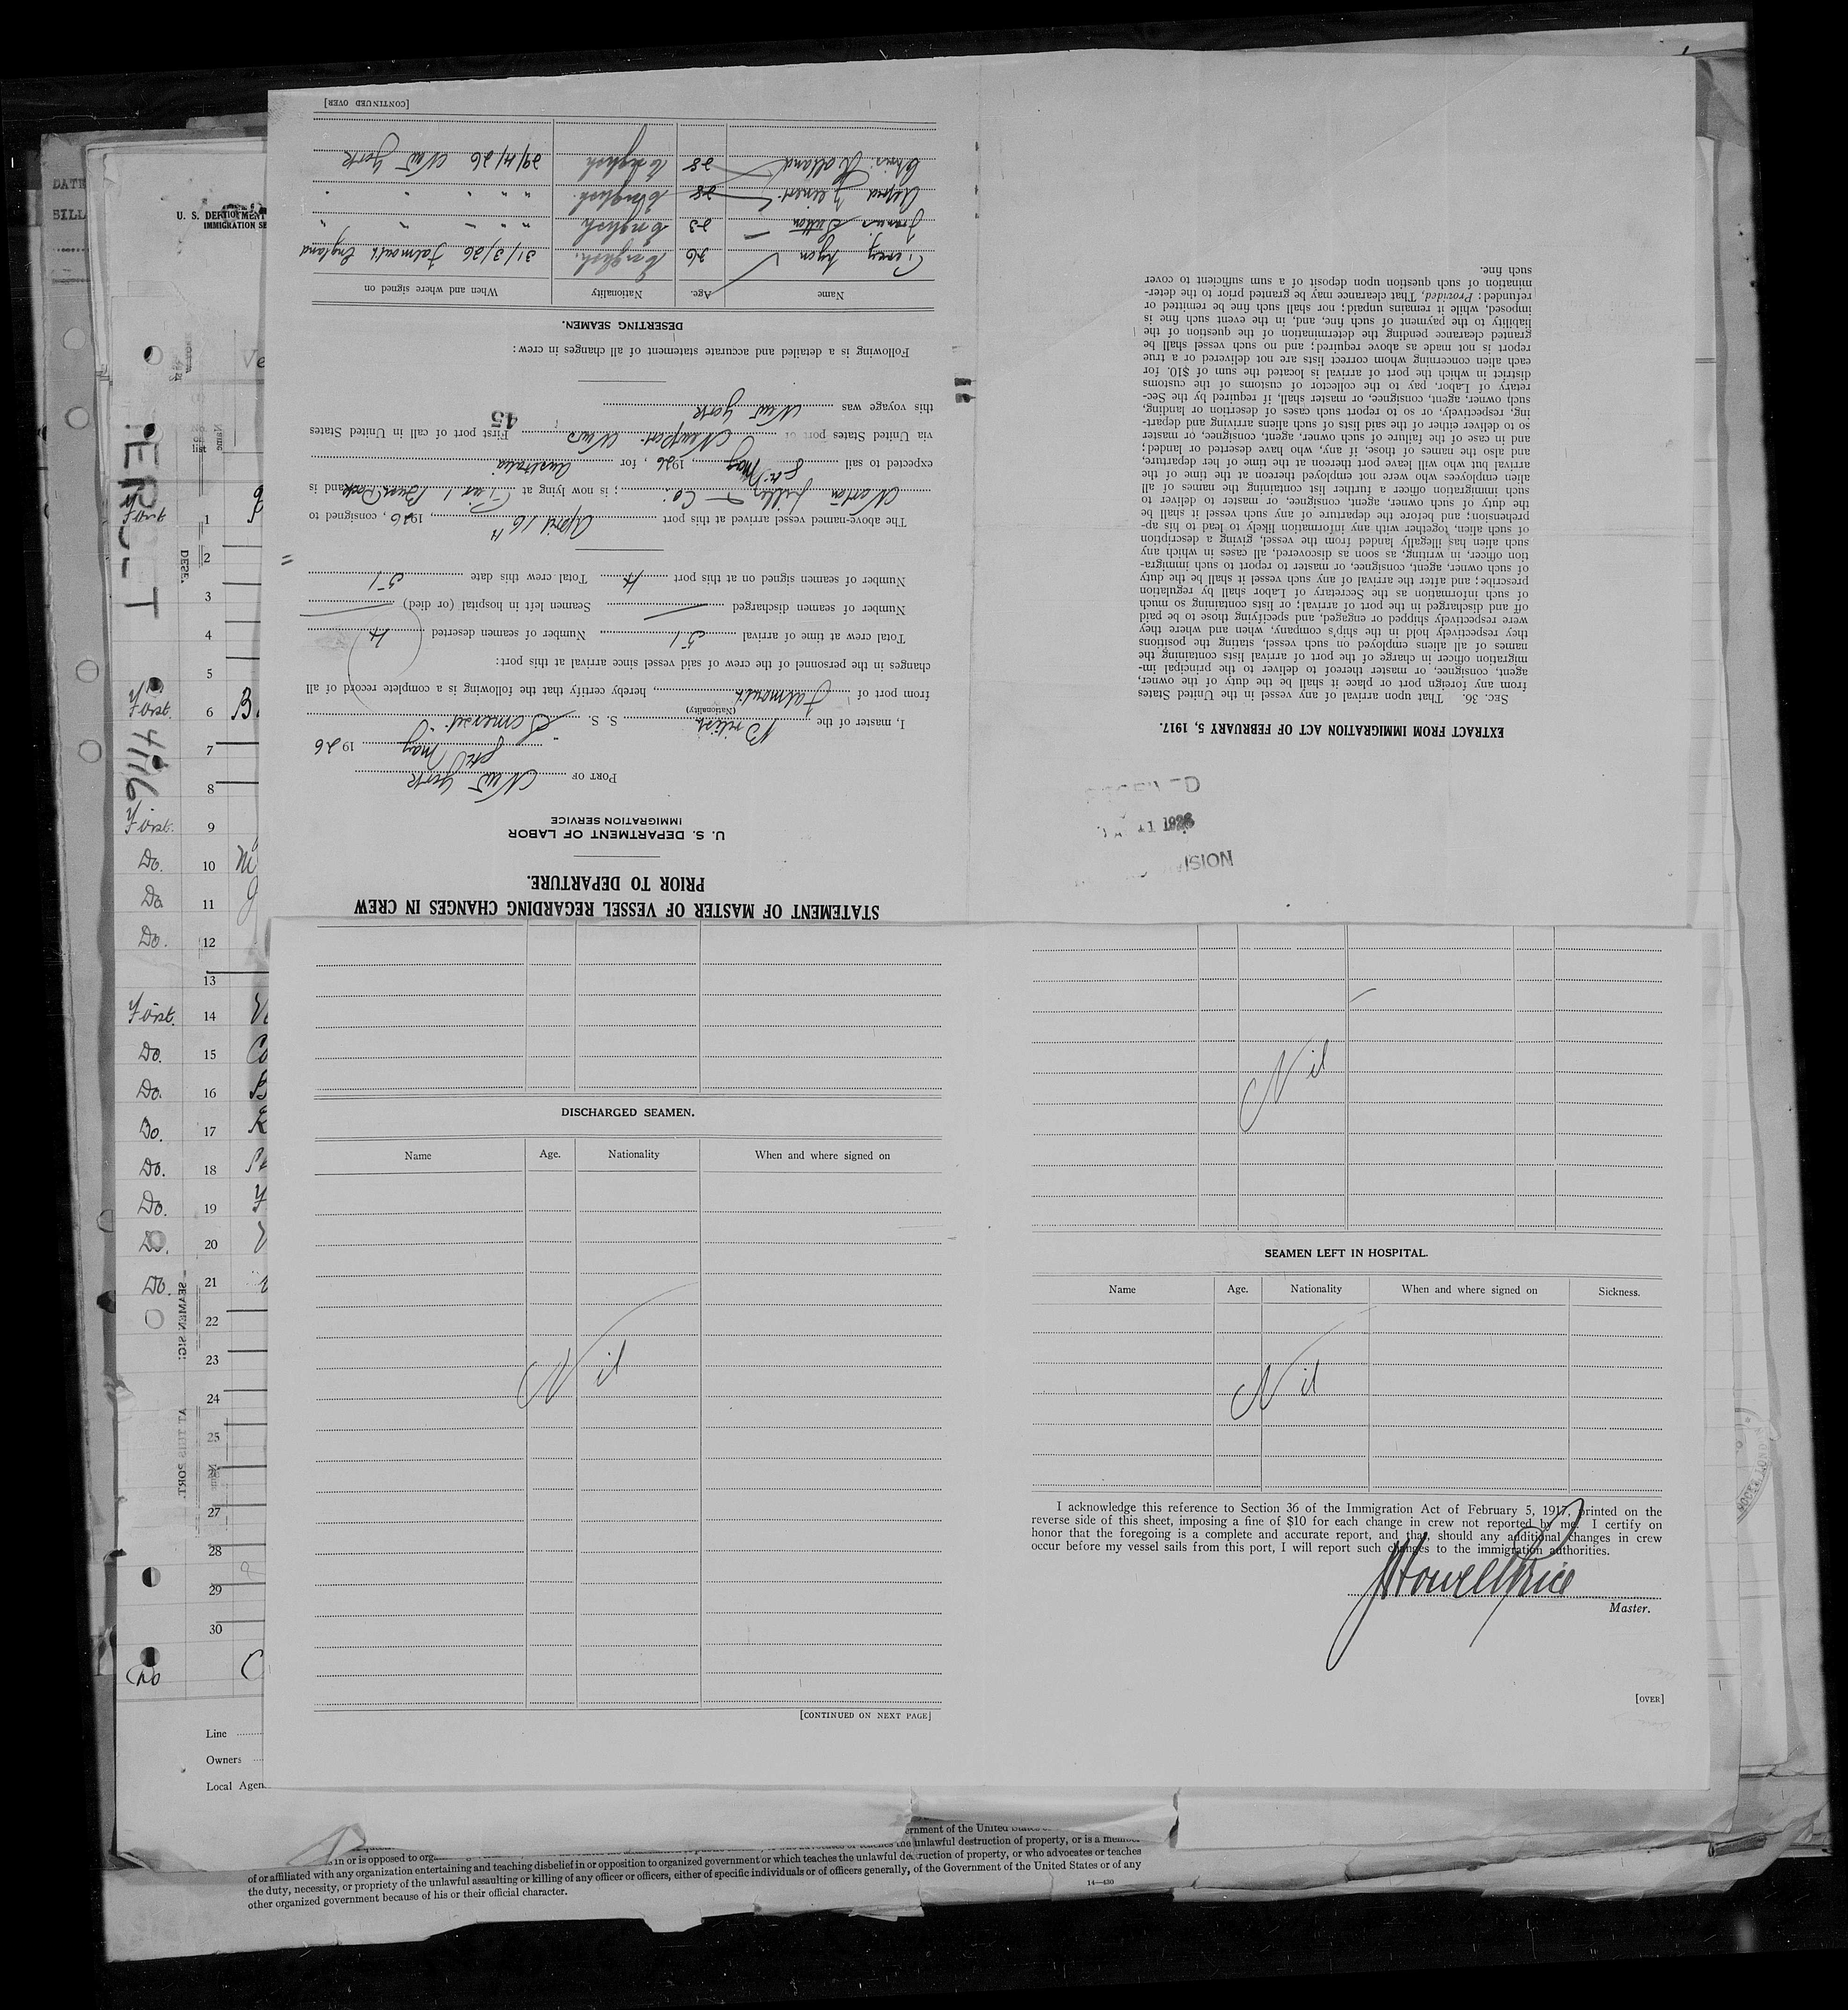 STATEMENT OF MASTER OF VESSEL REGARDING CHANGES IN CREW
PRIOR TO DEPARTURE.
U. S. DEPARTMENT OF LABOR
IMMIGRATION SERVICE
PORT OF New York
8th May 1926
I, master of the British S. S. "Somerset"
(Nationality)
from port of Falmouth, hereby certify that the following is a complete record of all
changes in the personnel of the crew of said vessel since arrival at this port:
Total crew at time of arrival 51 Number of seamen deserted 4
Number of seamen discharged — Seamen left in hospital (or died) —
Number of seamen signed on at this port 4 Total crew this date 51
The above-named vessel arrived at this port April 16th, 1926, consigned to
Norton Lilly & Co.; is now lying at Pier 1 Bush Dock and is
expected to sail 8th May, 1926, for Australia
via United States port of Newport News First port of call in United States
this voyage was New York
45
Following is a detailed and accurate statement of all changes in crew:
DESERTING SEAMEN.
Name Age. Nationality When and where signed on
Percy 26 English. 31/3/26 Falmouth England
Francis Sutton 23 English " " " "
Alfred 28 English. " " " "
Chris. Holland 28 English 29/4/26 New York
[CONTINUED OVER]
EXTRACT FROM IMMIGRATION ACT OF FEBRUARY 5, 1917.
SEC. 36. That upon arrival of any vessel in the United States
from any foreign port or place it shall be the duty of the owner,
agent, consignee, or master thereof to deliver to the principal im-
migration officer in charge of the port of arrival lists containing the
names of all aliens employed on such vessel, stating the positions
they respectively hold in the ship's company, when and where they
were respectively shipped or engaged, and specifying those to be paid
off and discharged in the port of arrival; or lists containing so much
of such information as the Secretary of Labor shall by regulation
prescribe; and after the arrival of any such vessel it shall be the duty
of such owner, agent, consignee, or master to report to such immigra-
tion officer, in writing, as soon as discovered, all cases in which any
such alien has illegally landed from the vessel, giving a description
of such alien, together with any information likely to lead to his ap-
prehension; and before the departure of any such vessel it shall be
the duty of such owner, agent, consignee, or master to deliver to
such immigration officer a further list containing the names of all
alien employees who were not employed thereon at the time of the
arrival but who will leave port thereon at the time of her departure,
and also the names of those, if any, who have deserted or landed;
and in case of the failure of such owner, agent, consignee, or master
so to deliver either of the said lists of such aliens arriving and depart-
ing, respectively, or so to report such cases of desertion or landing,
such owner, agent, consignee, or master shall, if required by the Sec-
retary of Labor, pay to the collector of customs of the customs
district in which the port of arrival is located the sum of $10. for
each alien concerning whom correct lists are not delivered or a true
report is not made as above required; and no such vessel shall be
granted clearance pending the determination of the question of the
liability to the payment of such fine, and, in the event such fine is
imposed, while it remains unpaid; nor shall such fine be remitted or
refunded: Provided, That clearance may be granted prior to the deter-
mination of such question upon deposit of a sum sufficient to cover
such fine.
11 1926
DISCHARGED SEAMEN.
Name Age. Nationality When and where signed on
Nil
[CONTINUED ON NEXT PAGE]
Nil
SEAMEN LEFT IN HOSPITAL.
Name Age. Nationality When and where signed on Sickness.
Nil
I acknowledge this reference to Section 36 of the Immigration Act of February 5, 1917, printed on the
reverse side of this sheet, imposing a fine of $10 for each change in crew not reported by me. I certify on
honor that the foregoing is a complete and accurate report, and that, should any additional changes in crew
occur before my vessel sails from this port, I will report such changes to the immigration authorities.
J Howell Price
Master.
[OVER]
DATE
BILL
U. S. DEPARTMENT
IMMIGRATION SE
list
1
2
3
4
5
First. 6
7
8
First. 9
Do. 10
Do 11
Do. 12
13
First. 14
Do. 15
Do. 16
Do. 17
Do. 18
Do. 19
Do. 20
Do. 21
22
23
24
25
27
28
29
30
Line
Owners
Local Agen
ernment of the United
unlawful destruction of property, or is a member
of or affiliated with any organization entertaining and teaching disbelief in or opposition to organized government or which teaches the unlawful destruction of property, or who advocates or teaches
the duty, necessity, or propriety of the unlawful assaulting or killing of any officer or officers, either of specific individuals or of officers generally, of the Government of the United States or of any
other organized government because of his or their official character.
14—430